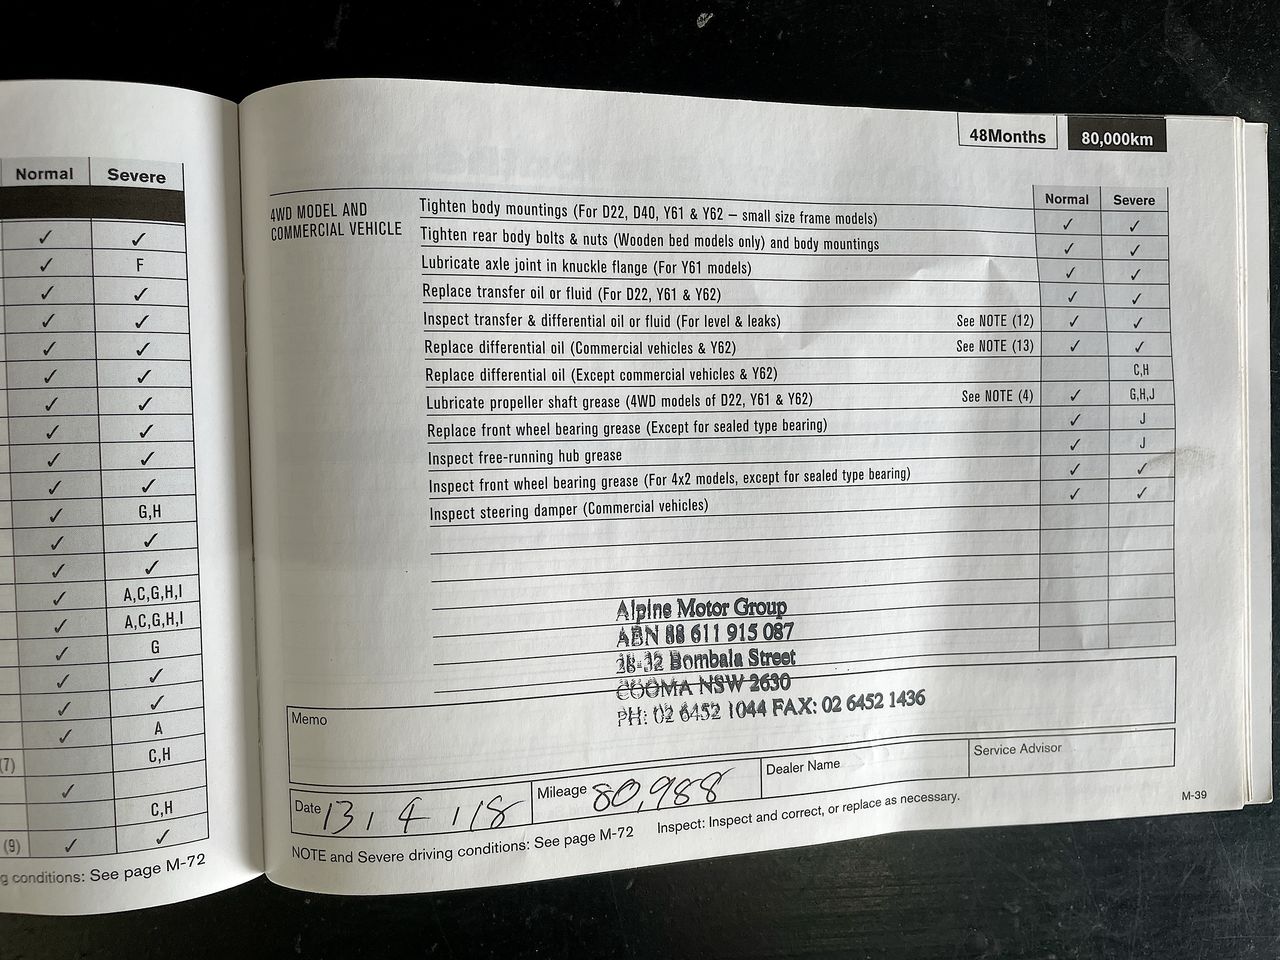 Normal Severe
✓ ✓
✓ F
✓ ✓
✓ ✓
✓ ✓
✓ ✓
✓ ✓
✓ ✓
✓ ✓
✓ ✓
✓ G,H
✓ ✓
✓ ✓
✓ A,C,G,H,I
✓ A,C,G,H,I
✓ G
✓ ✓
✓ ✓
✓ A
(7) C,H
✓
C,H
(9) ✓ ✓
g conditions: See page M-72
48Months 80,000km
Normal Severe
4WD MODEL AND
COMMERCIAL VEHICLE
Tighten body mountings (For D22, D40, Y61 & Y62 – small size frame models) ✓ ✓
Tighten rear body bolts & nuts (Wooden bed models only) and body mountings ✓ ✓
Lubricate axle joint in knuckle flange (For Y61 models) ✓ ✓
Replace transfer oil or fluid (For D22, Y61 & Y62) ✓ ✓
Inspect transfer & differential oil or fluid (For level & leaks) See NOTE (12) ✓ ✓
Replace differential oil (Commercial vehicles & Y62) See NOTE (13) ✓ ✓
Replace differential oil (Except commercial vehicles & Y62) C,H
Lubricate propeller shaft grease (4WD models of D22, Y61 & Y62) See NOTE (4) ✓ G,H,J
Replace front wheel bearing grease (Except for sealed type bearing) ✓ J
Inspect free-running hub grease ✓ J
Inspect front wheel bearing grease (For 4x2 models, except for sealed type bearing) ✓ ✓
Inspect steering damper (Commercial vehicles) ✓ ✓
Alpine Motor Group
ABN 88 611 915 087
28-32 Bombala Street
COOMA NSW 2630
PH: 02 6452 1044 FAX: 02 6452 1436
Memo
Date 13 / 4 / 18 Mileage 80,988 Dealer Name Service Advisor
NOTE and Severe driving conditions: See page M-72 Inspect: Inspect and correct, or replace as necessary.
M-39